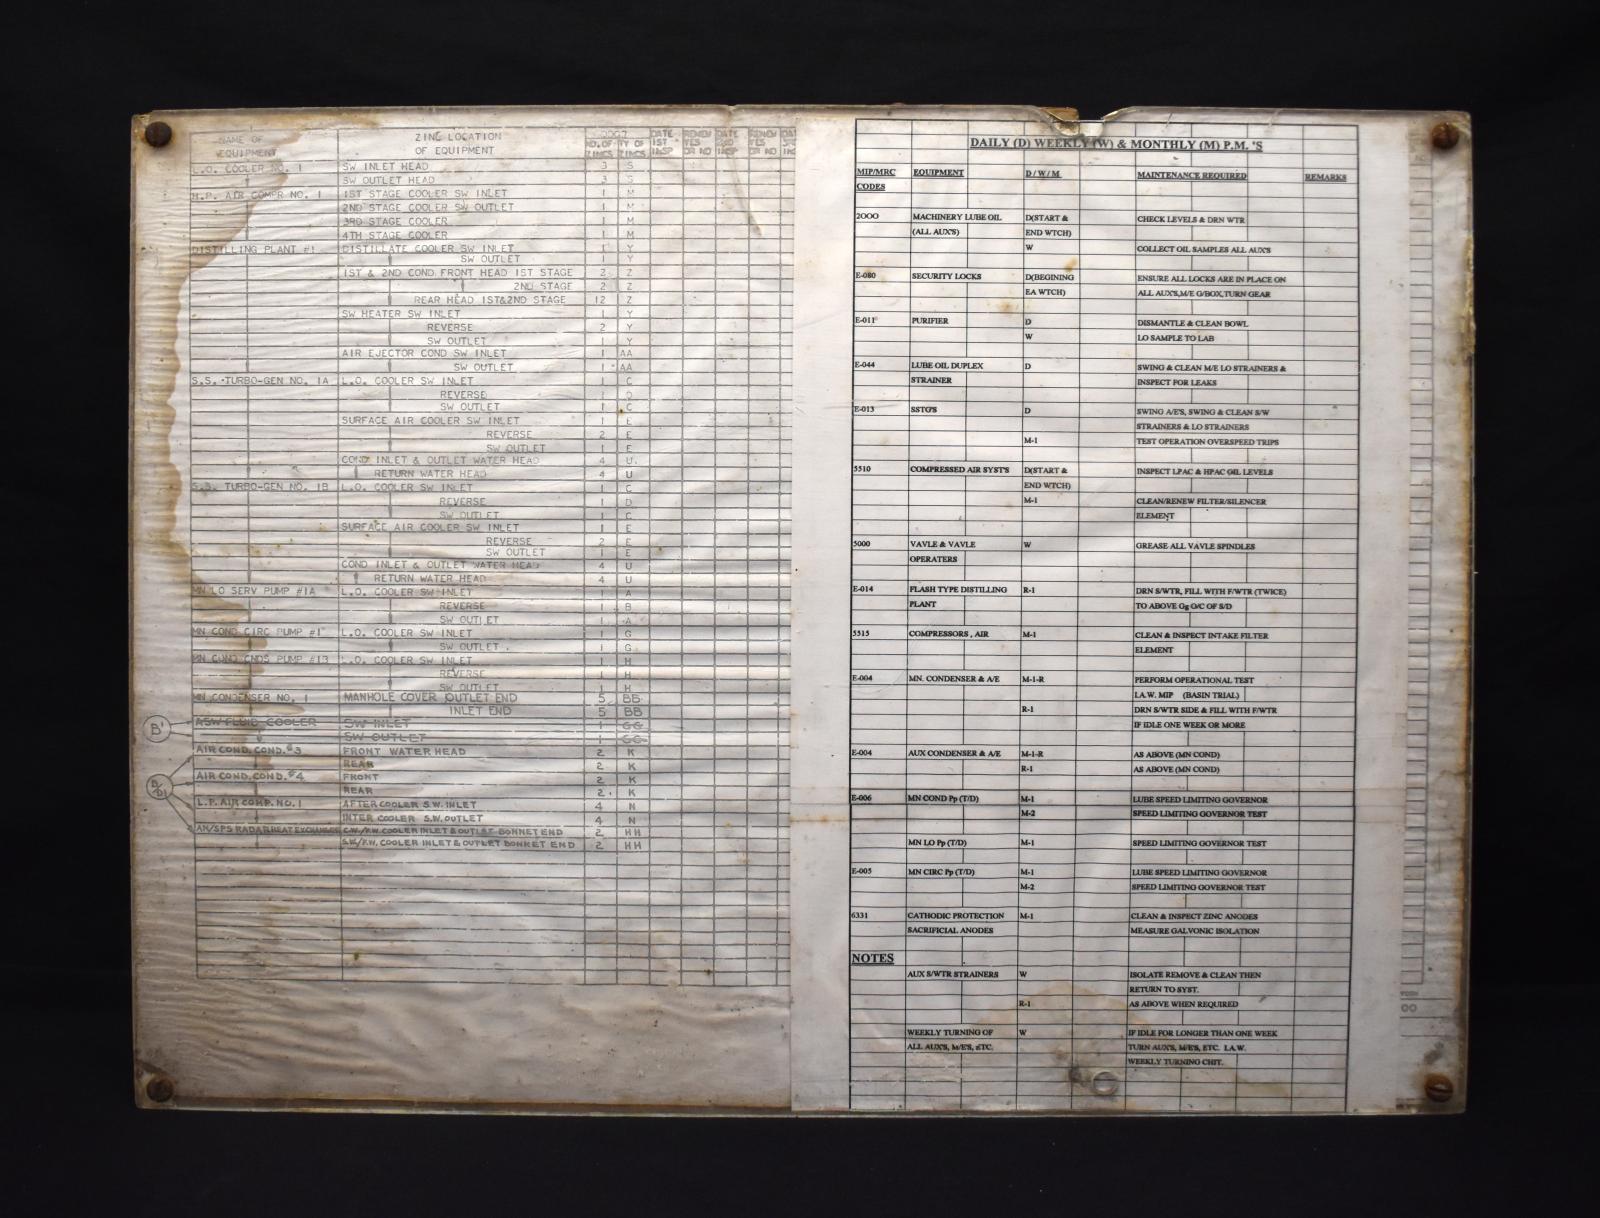 NAME OF EQUIPMENT ZINC LOCATION OF EQUIPMENT NO. OF ZINCS TY OF ZINCS DATE 1ST INSP RENEW YES OR NO DATE 2ND INSP RENEW YES OR NO
L.O. COOLER NO. 1 SW INLET HEAD 3 S
SW OUTLET HEAD 3 S
H.P. AIR COMPR NO. 1 1ST STAGE COOLER SW INLET 1 M
2ND STAGE COOLER SW OUTLET 1 M
3RD STAGE COOLER 1 M
4TH STAGE COOLER 1 M
DISTILLING PLANT #1 DISTILLATE COOLER SW INLET 1 Y
SW OUTLET 1 Y
1ST & 2ND COND FRONT HEAD 1ST STAGE 2 Z
2ND STAGE 2 Z
REAR HEAD 1ST&2ND STAGE 12 Z
SW HEATER SW INLET 1 Y
REVERSE 2 Y
SW OUTLET 1 Y
AIR EJECTOR COND SW INLET 1 AA
SW OUTLET 1 AA
S.S. TURBO-GEN NO. 1A L.O. COOLER SW INLET 1 C
REVERSE 1 D
SW OUTLET 1 C
SURFACE AIR COOLER SW INLET 1 E
REVERSE 2 E
SW OUTLET 1 E
COND INLET & OUTLET WATER HEAD 4 U
RETURN WATER HEAD 4 U
S.S. TURBO-GEN NO. 1B L.O. COOLER SW INLET 1 C
REVERSE 1 D
SW OUTLET 1 C
SURFACE AIR COOLER SW INLET 1 E
REVERSE 2 E
SW OUTLET 1 E
COND INLET & OUTLET WATER HEAD 4 U
RETURN WATER HEAD 4 U
MN LO SERV PUMP #1A L.O. COOLER SW INLET 1 A
REVERSE 1 B
SW OUTLET 1 A
MN COND CIRC PUMP #1 L.O. COOLER SW INLET 1 G
SW OUTLET 1 G
MN COND CNDS PUMP #1B L.O. COOLER SW INLET 1 H
REVERSE 1 H
SW OUTLET 1 H
MN CONDENSER NO. 1 MANHOLE COVER OUTLET END 5 BB
INLET END 5 BB
B' ASW FLUID COOLER SW INLET 1 GG
SW OUTLET 1 GG
AIR COND. COND. #3 FRONT WATER HEAD 2 K
REAR 2 K
AIR COND. COND. #4 FRONT 2 K
REAR 2 K
L.P. AIR COMP. NO. 1 AFTER COOLER S.W. INLET 4 N
INTER COOLER S.W. OUTLET 4 N
AN/SPS RADAR HEAT EXCHANGER C.W./F.W. COOLER INLET & OUTLET BONNET END 2 HH
S.W./F.W. COOLER INLET & OUTLET BONNET END 2 HH
DAILY (D) WEEKLY (W) & MONTHLY (M) P.M. 'S
MIP/MRC CODES EQUIPMENT D / W / M MAINTENANCE REQUIRED REMARKS
2000 MACHINERY LUBE OIL D(START & CHECK LEVELS & DRN WTR
(ALL AUX'S) END WTCH)
W COLLECT OIL SAMPLES ALL AUX'S
E-080 SECURITY LOCKS D(BEGINING ENSURE ALL LOCKS ARE IN PLACE ON
EA WTCH) ALL AUX'S,M/E G/BOX,TURN GEAR
E-011 PURIFIER D DISMANTLE & CLEAN BOWL
W LO SAMPLE TO LAB
E-044 LUBE OIL DUPLEX D SWING & CLEAN M/E LO STRAINERS &
STRAINER INSPECT FOR LEAKS
E-013 SSTG'S D SWING A/E'S, SWING & CLEAN S/W
STRAINERS & LO STRAINERS
M-1 TEST OPERATION OVERSPEED TRIPS
5510 COMPRESSED AIR SYST'S D(START & INSPECT LPAC & HPAC OIL LEVELS
END WTCH)
M-1 CLEAN/RENEW FILTER/SILENCER
ELEMENT
5000 VAVLE & VAVLE W GREASE ALL VAVLE SPINDLES
OPERATERS
E-014 FLASH TYPE DISTILLING R-1 DRN S/WTR, FILL WITH F/WTR (TWICE)
PLANT TO ABOVE Gg O/C OF S/D
5515 COMPRESSORS , AIR M-1 CLEAN & INSPECT INTAKE FILTER
ELEMENT
E-004 MN. CONDENSER & A/E M-1-R PERFORM OPERATIONAL TEST
I.A.W. MIP (BASIN TRIAL)
R-1 DRN S/WTR SIDE & FILL WITH F/WTR
IF IDLE ONE WEEK OR MORE
E-004 AUX CONDENSER & A/E M-1-R AS ABOVE (MN COND)
R-1 AS ABOVE (MN COND)
E-006 MN COND Pp (T/D) M-1 LUBE SPEED LIMITING GOVERNOR
M-2 SPEED LIMITING GOVERNOR TEST
MN LO Pp (T/D) M-1 SPEED LIMITING GOVERNOR TEST
E-005 MN CIRC Pp (T/D) M-1 LUBE SPEED LIMITING GOVERNOR
M-2 SPEED LIMITING GOVERNOR TEST
6331 CATHODIC PROTECTION M-1 CLEAN & INSPECT ZINC ANODES
SACRIFICIAL ANODES MEASURE GALVONIC ISOLATION
NOTES
AUX S/WTR STRAINERS W ISOLATE REMOVE & CLEAN THEN
RETURN TO SYST.
R-1 AS ABOVE WHEN REQUIRED
WEEKLY TURNING OF W IF IDLE FOR LONGER THAN ONE WEEK
ALL AUX'S, M/E'S, ETC. TURN AUX'S, M/E'S, ETC. I.A.W.
WEEKLY TURNING CHIT.